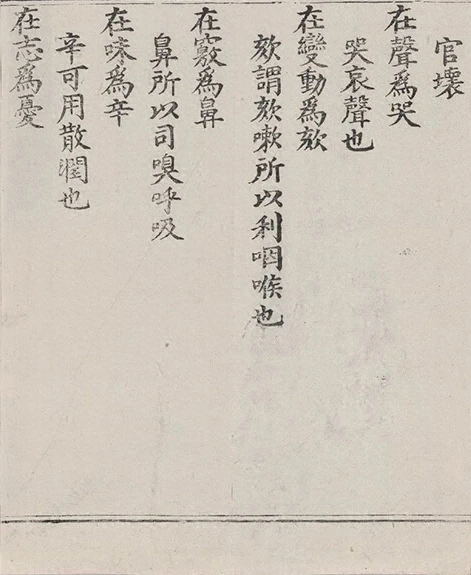 官壞
在聲為哭
哭哀聲也
在變動為欬
欬謂欬嗽所以利咽喉也
在竅為鼻
鼻所以司嗅呼吸
在味為辛
辛可用散潤也
在志為憂